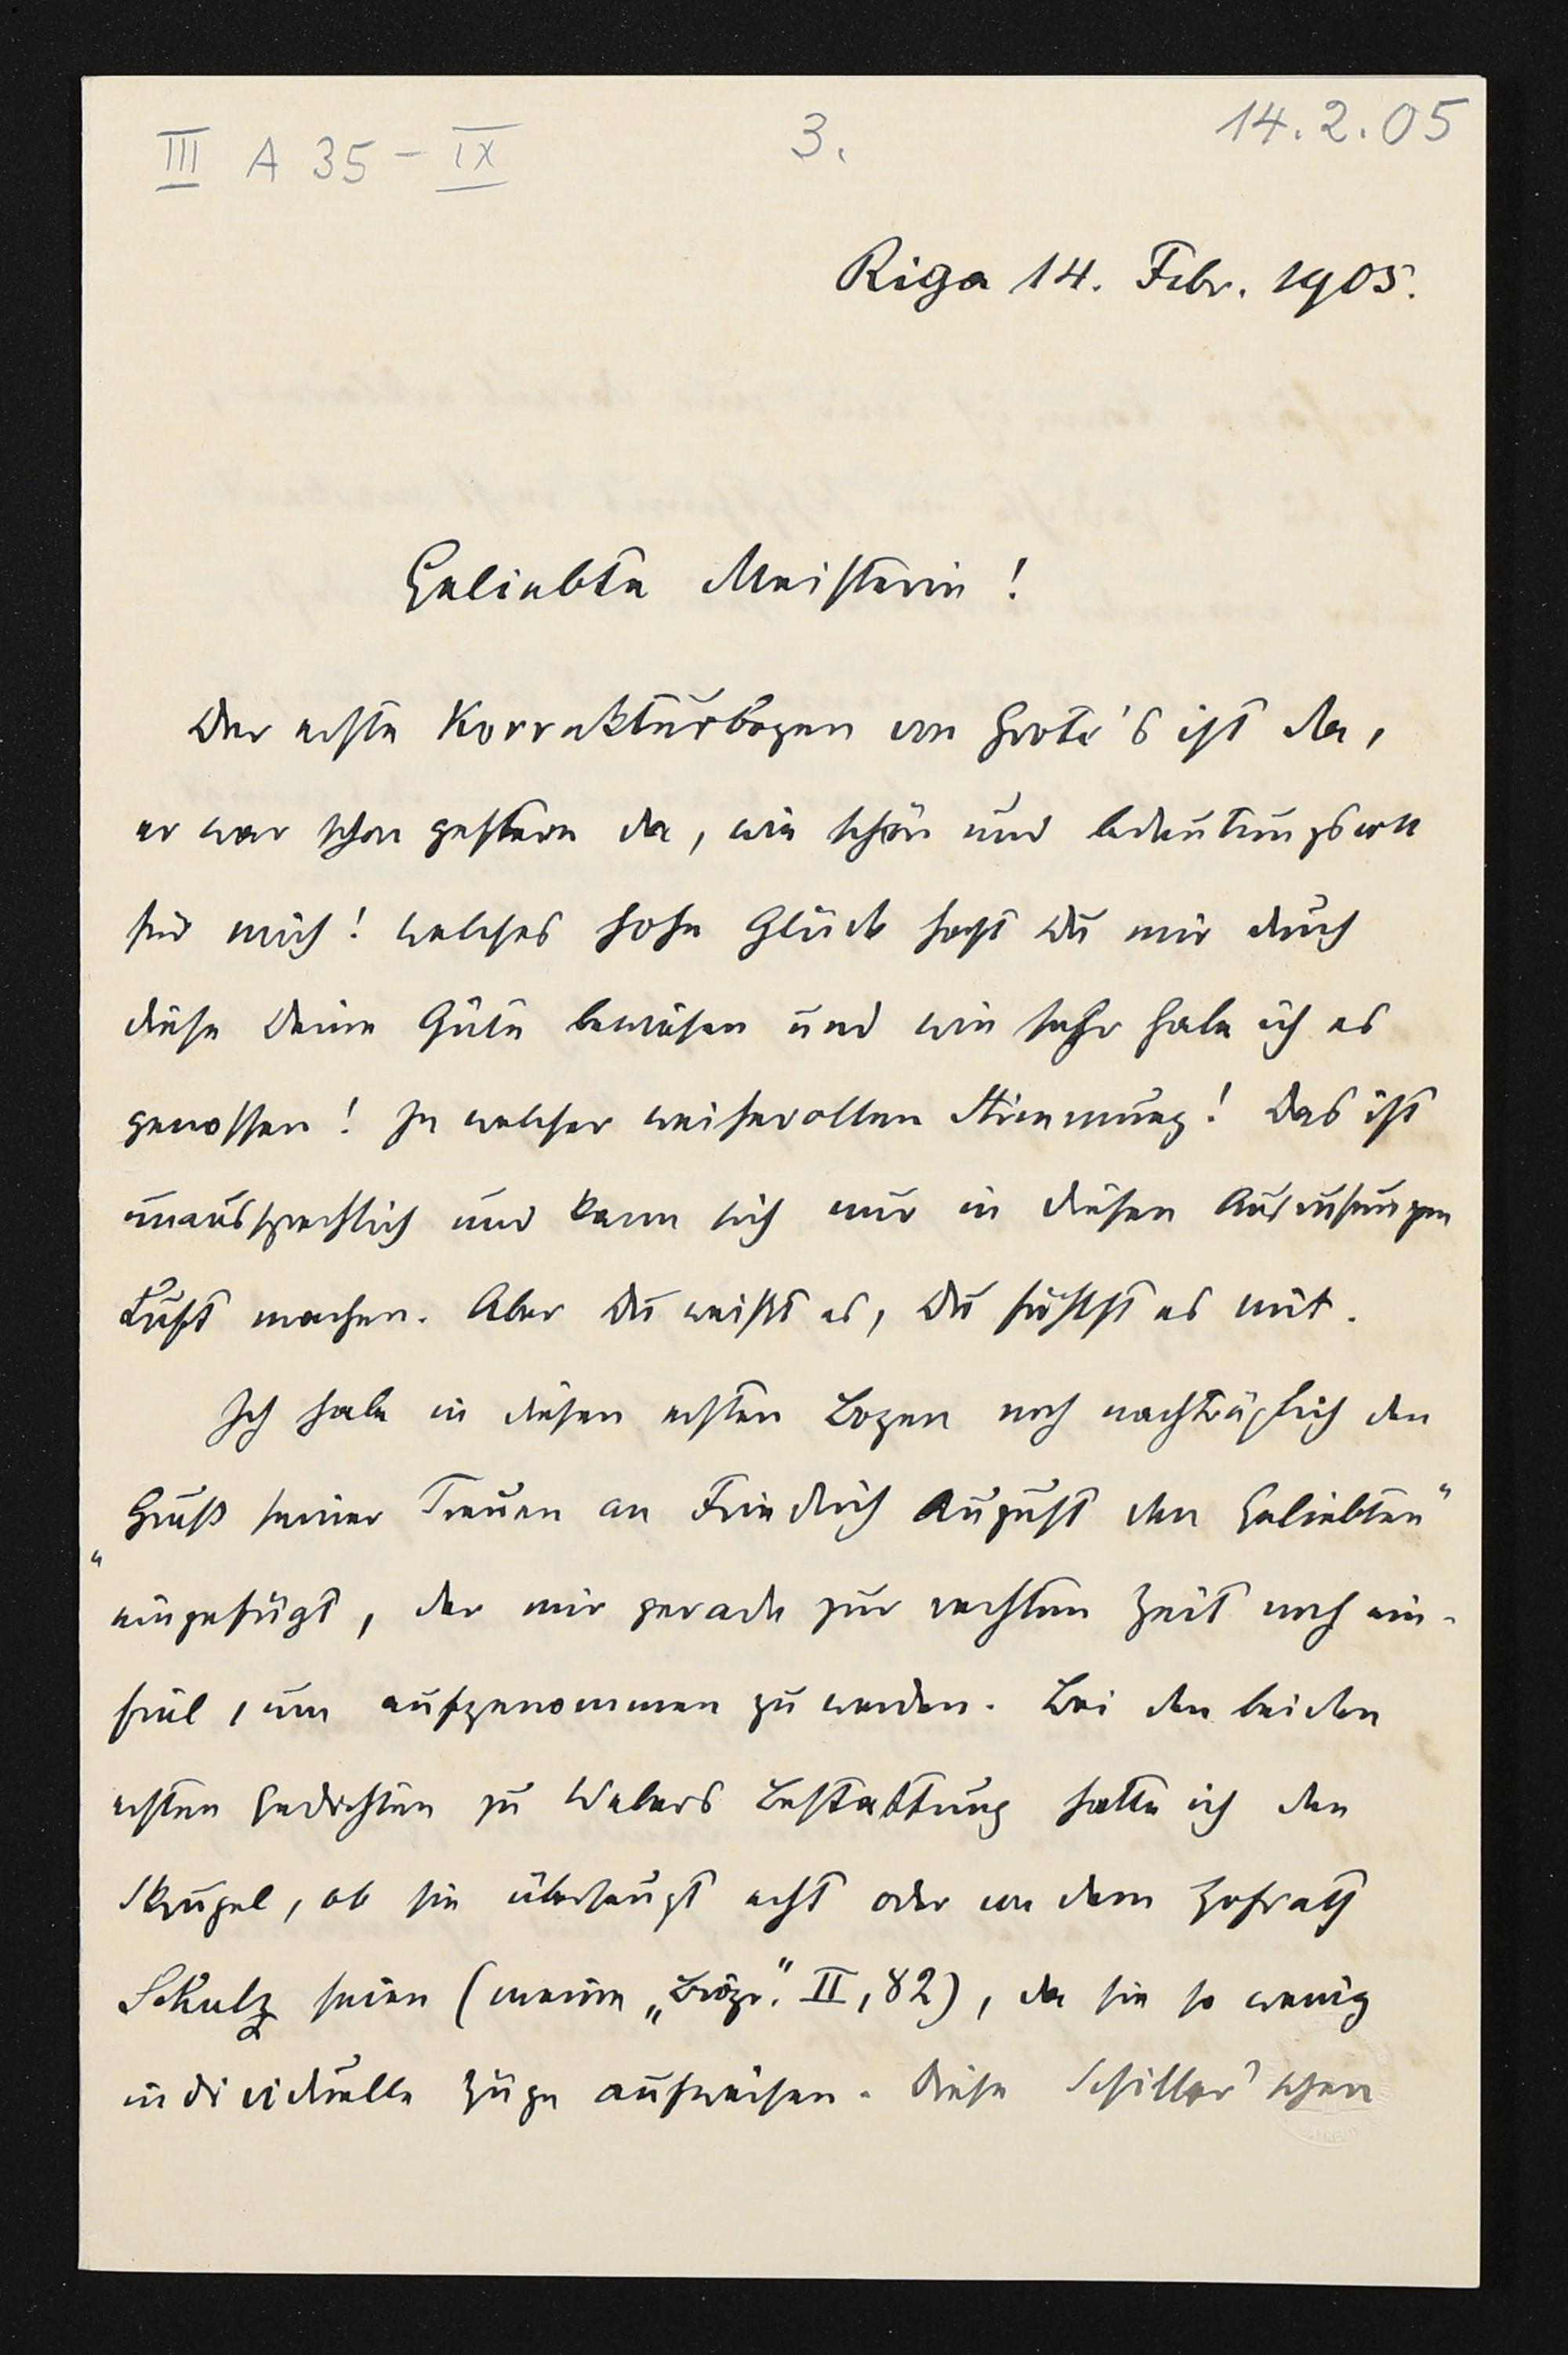 III A 35 – IX
3.
14.2.05
Riga 14. Febr. 1905.
Geliebte Meisterin!
Der erste Korrekturbogen von Grote's ist da,
er war schon gestern da, wie schön und bedeutungsvoll
für mich! Welches hohe Glück hast Du mir durch
diese Deine Güte bewiesen und wie sehr habe ich es
genossen! In welcher weihevollen Stimmung! Das ist
unaussprechlich und kann sich nur in diesen Ausrufungen
Luft machen. Aber Du weißt es, Du fühlst es mit.
Ich habe in diesen ersten Bogen noch nachträglich den
„Gruß seiner Treuen an Friedrich August den Geliebten"
eingefügt, der mir gerade zur rechten Zeit noch ein-
fiel, um aufgenommen zu werden. Bei den beiden
ersten Gedichten zu Webers Bestattung hatte ich den
Skrupel, ob sie überhaupt echt oder von dem Hofrath
Schulz seien (meine „Biogr." II, 82), da sie so wenig
individuelle Züge aufweisen. Diese Schiller'schen